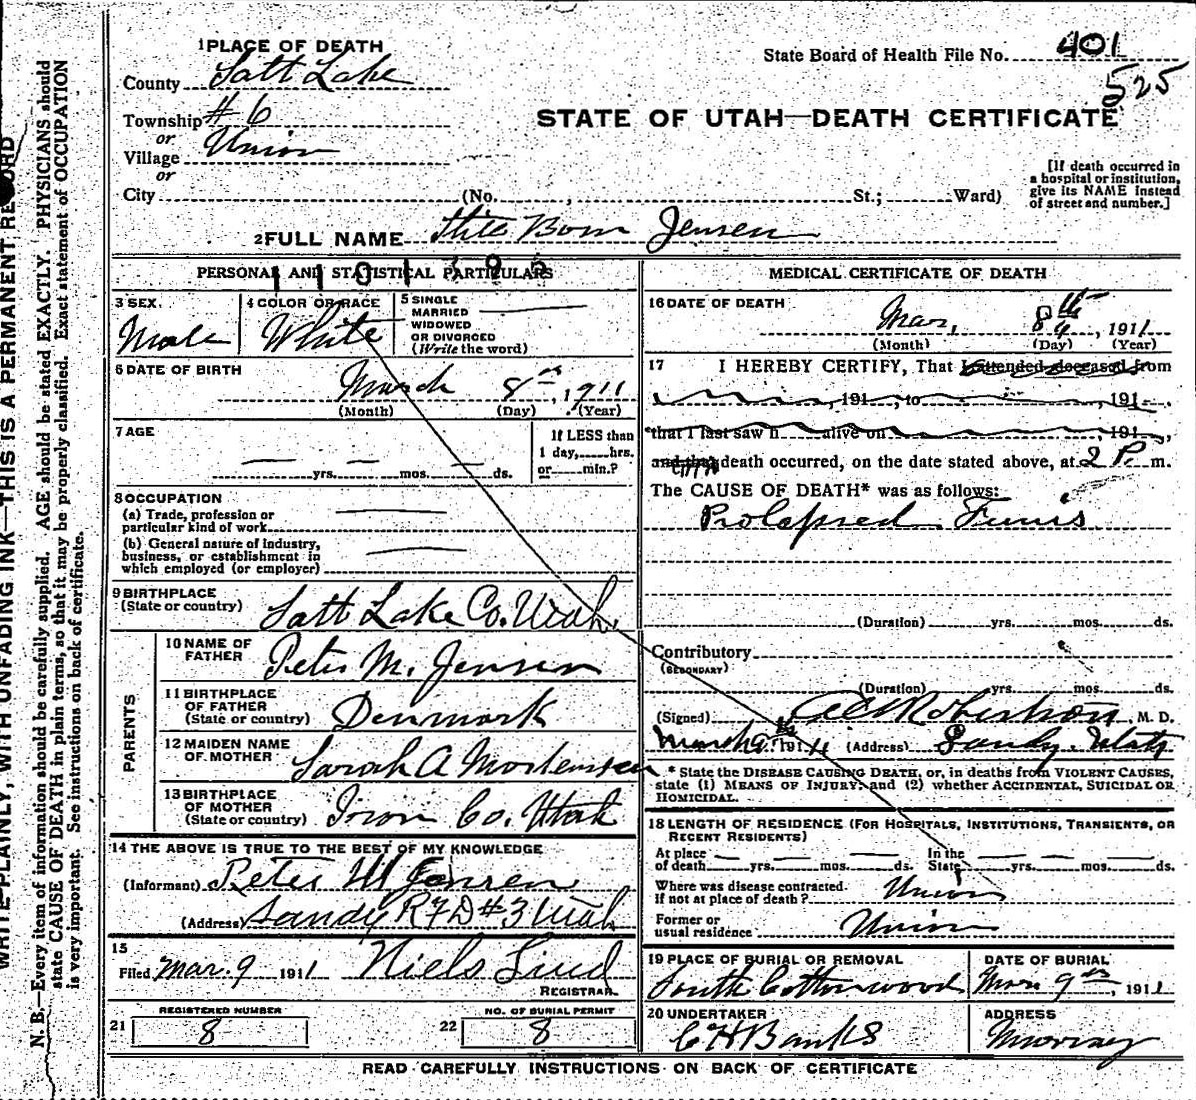 WRITE PLAINLY, WITH UNFADING INK—THIS IS A PERMANENT RECORD
N. B.—Every item of information should be carefully supplied. AGE should be stated EXACTLY. PHYSICIANS should
state CAUSE OF DEATH in plain terms, so that it may be properly classified. Exact statement of OCCUPATION
is very important. See instructions on back of certificate.
1 PLACE OF DEATH
County Salt Lake
Township #6
or
Village Union
or
City (No. St.; Ward)
State Board of Health File No. 401
525
STATE OF UTAH—DEATH CERTIFICATE
[If death occurred in
a hospital or institution,
give its NAME instead
of street and number.]
2 FULL NAME Still Born Jensen
PERSONAL AND STATISTICAL PARTICULARS
3 SEX
Male
4 COLOR OR RACE
White
5 SINGLE
MARRIED
WIDOWED
OR DIVORCED
(Write the word)
6 DATE OF BIRTH
March 8th, 1911
(Month) (Day) (Year)
7 AGE
yrs. mos. ds.
If LESS than
1 day, hrs.
or min.?
8 OCCUPATION
(a) Trade, profession or
particular kind of work
(b) General nature of industry,
business, or establishment in
which employed (or employer)
9 BIRTHPLACE
(State or country) Salt Lake Co. Utah
PARENTS
10 NAME OF
FATHER Peter M. Jensen
11 BIRTHPLACE
OF FATHER
(State or country) Denmark
12 MAIDEN NAME
OF MOTHER Sarah A Mortensen
13 BIRTHPLACE
OF MOTHER
(State or country) Iron Co. Utah
14 THE ABOVE IS TRUE TO THE BEST OF MY KNOWLEDGE
(Informant) Peter M Jensen
(Address) Sandy RFD #3 Utah
15
Filed Mar. 9 1911 Niels Lind
REGISTRAR.
21 REGISTERED NUMBER
8
22 NO. OF BURIAL PERMIT
8
MEDICAL CERTIFICATE OF DEATH
16 DATE OF DEATH
Mar. 8th, 1911
(Month) (Day) (Year)
17 I HEREBY CERTIFY, That I attended deceased from
, 191 , to , 191 ,
that I last saw h alive on , 191 ,
and that death occurred, on the date stated above, at 2 P. m.
The CAUSE OF DEATH* was as follows:
Prolapsed Funis
(Duration) yrs. mos. ds.
Contributory
(SECONDARY)
(Duration) yrs. mos. ds.
(Signed) Robertson, M. D.
March 1911 (Address) Sandy, Utah
* State the DISEASE CAUSING DEATH, or, in deaths from VIOLENT CAUSES,
state (1) MEANS OF INJURY; and (2) whether ACCIDENTAL, SUICIDAL OR
HOMICIDAL.
18 LENGTH OF RESIDENCE (FOR HOSPITALS, INSTITUTIONS, TRANSIENTS, OR
RECENT RESIDENTS)
At place
of death yrs. mos. ds. In the
State yrs. mos. ds.
Where was disease contracted
if not at place of death? Union
Former or
usual residence Union
19 PLACE OF BURIAL OR REMOVAL
South Cottonwood
DATE OF BURIAL
Mar. 9th, 1911
20 UNDERTAKER
C H Banks
ADDRESS
Murray
READ CAREFULLY INSTRUCTIONS ON BACK OF CERTIFICATE